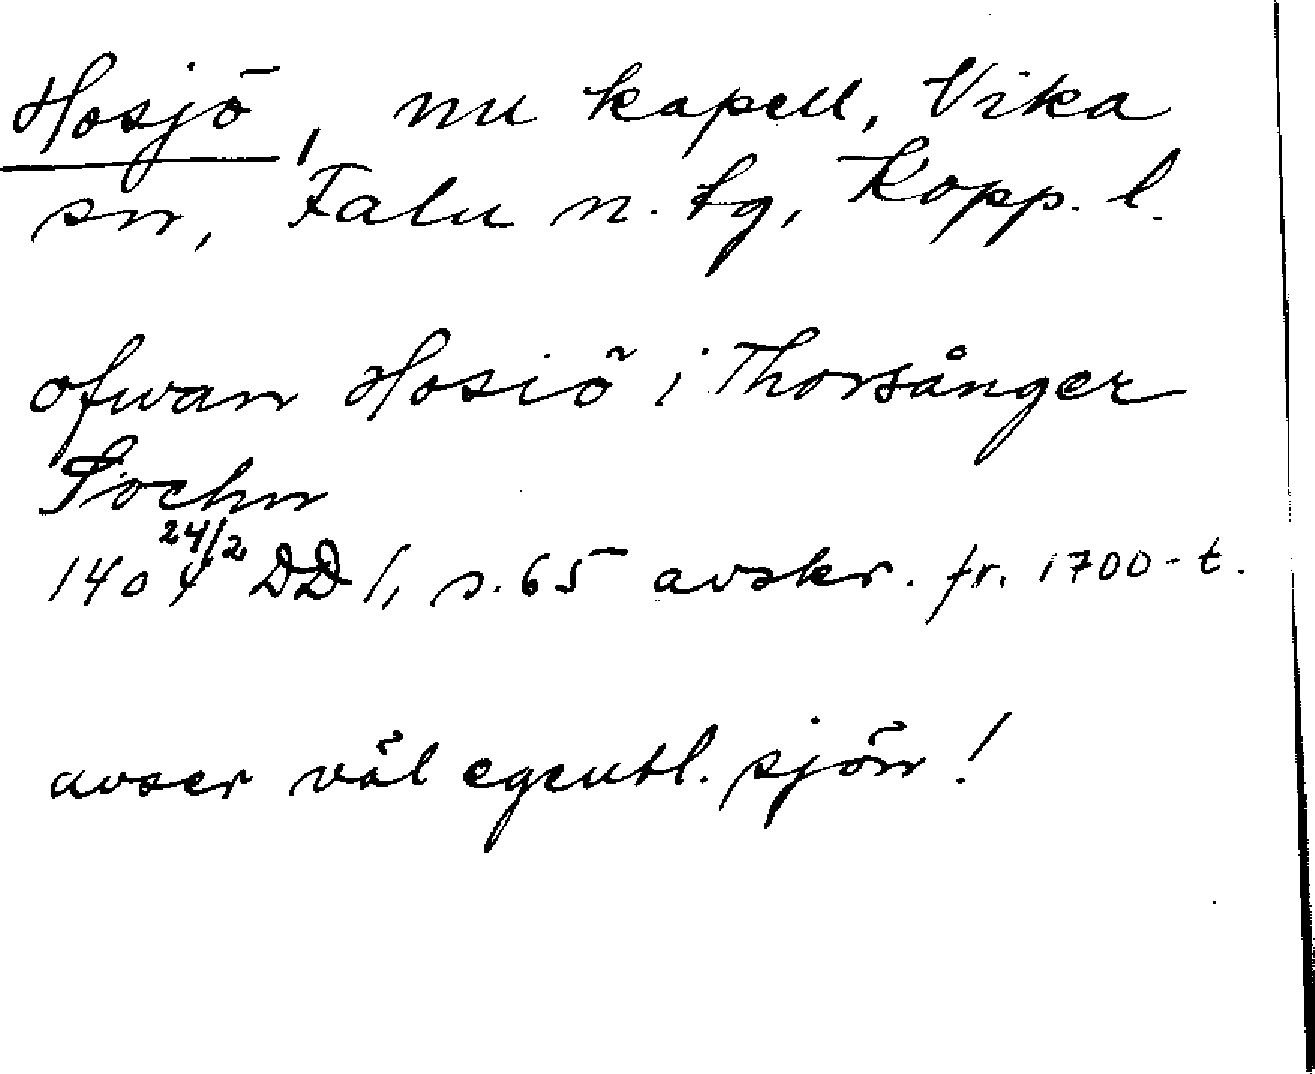 Hosjö, nu kapell, Vika
sn, Falu n. tg, Kopp. l.
ofwan Hosiö i Thorsånger
Sochn
1404 24/2 DD 1, s. 65 avskr. fr. 1700-t.
avser väl egentl. sjön!